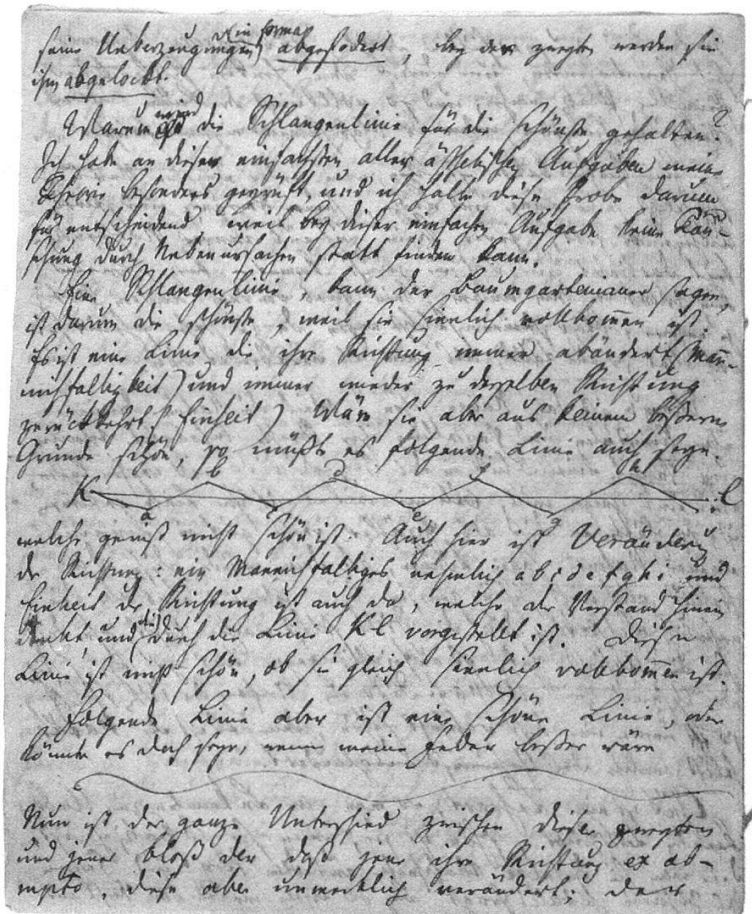 seine Ueberzeugungen (ein formal) abgefodert, bey der zweyten werden sie
ihm abgelockt.
Warum wird die Schlangenlinie für die schönste gehalten?
Ich habe an dieser einfachsten aller ästhetischen Aufgaben meine
Theorie besonders geprüft, und ich halte diese Probe darum
für entscheidend, weil bey dieser einfachen Aufgabe keine Täu-
schung durch Nebenursachen statt finden kann.
Eine Schlangenlinie, kann der Baumgartenianer sagen,
ist darum die schönste, weil sie sinnlich vollkommen ist.
Es ist eine Linie, die ihre Richtung immer abändert (Man-
nichfaltigkeit) und immer wieder zu derselben Richtung
zurückkehrt (Einheit) Wäre sie aber aus keinem beßeren
Grunde schön, so müßte es folgende Linie auch seyn.
K a d e g h l
welche gewiß nicht schön ist. Auch hier ist Veränderung
der Richtung: ein Mannichfaltiges nehmlich a b c d e f g h i und
Einheit der Richtung ist auch da, welche der Verstand hinein
denkt und die durch die Linie K l vorgestellt ist. Diese
Linie ist nicht schön, ob sie gleich sinnlich vollkommen ist.
Folgende Linie aber ist eine schöne Linie, oder
könnte es doch seyn, wenn meine Feder beßer wäre
Nun ist der ganze Unterschied zwischen dieser zweyten
und jener bloß der daß jene ihre Richtung ex ab-
rupto, diese aber unmerklich verändert; der